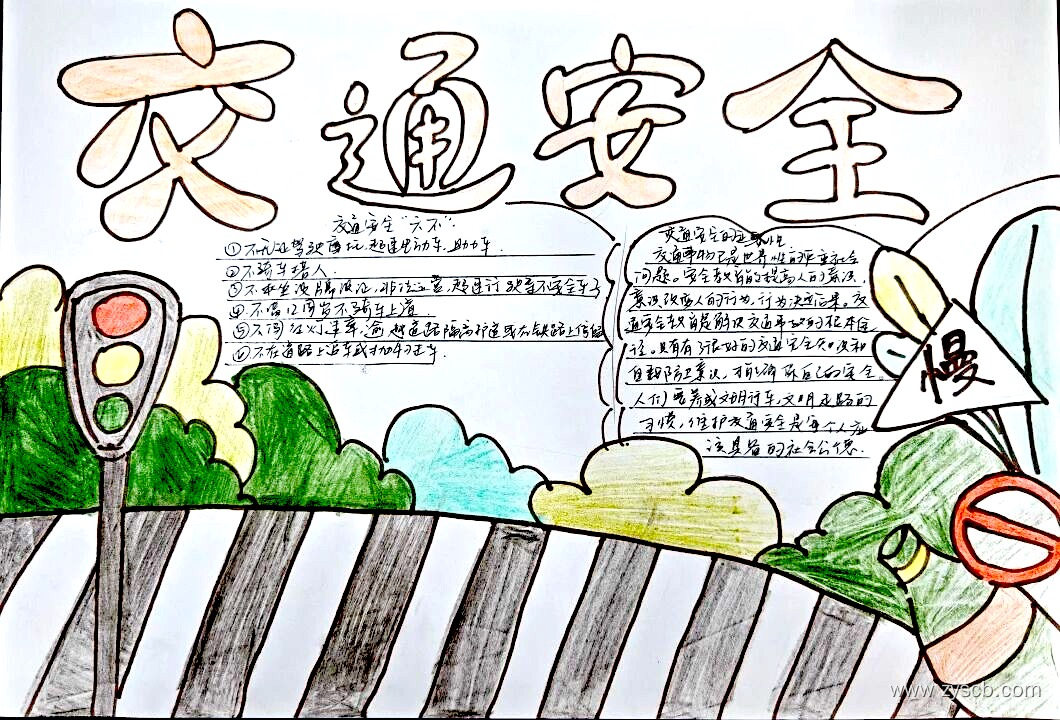 交通安全
交通安全"六不"
①不无证驾驶摩托,超速电动车,助力车.
②不骑车撞人.
③不乘坐液牌液证,非法运营,超速行驶等不安全车
④不满12周岁不骑车上道
⑤不闯红灯乱穿,逾越道路隔离护道或在铁路上停留
⑥不在道路上追车或抛物击车.
交通安全的重要性
交通事物已成世界性的严重社会
问题。安全教育的提高人的意识,
意识改变人的行为,行为决定结果。交
通安全教育是解决交通事故的根本途
径。只有有了很好的交通安全知识和
自我防卫意识,才能确保自己的安全。
人们培养成文明行车,文明走路的
习惯,维护交通安全是每个人应
该具备的社会公德.
慢
www.zyscb.com